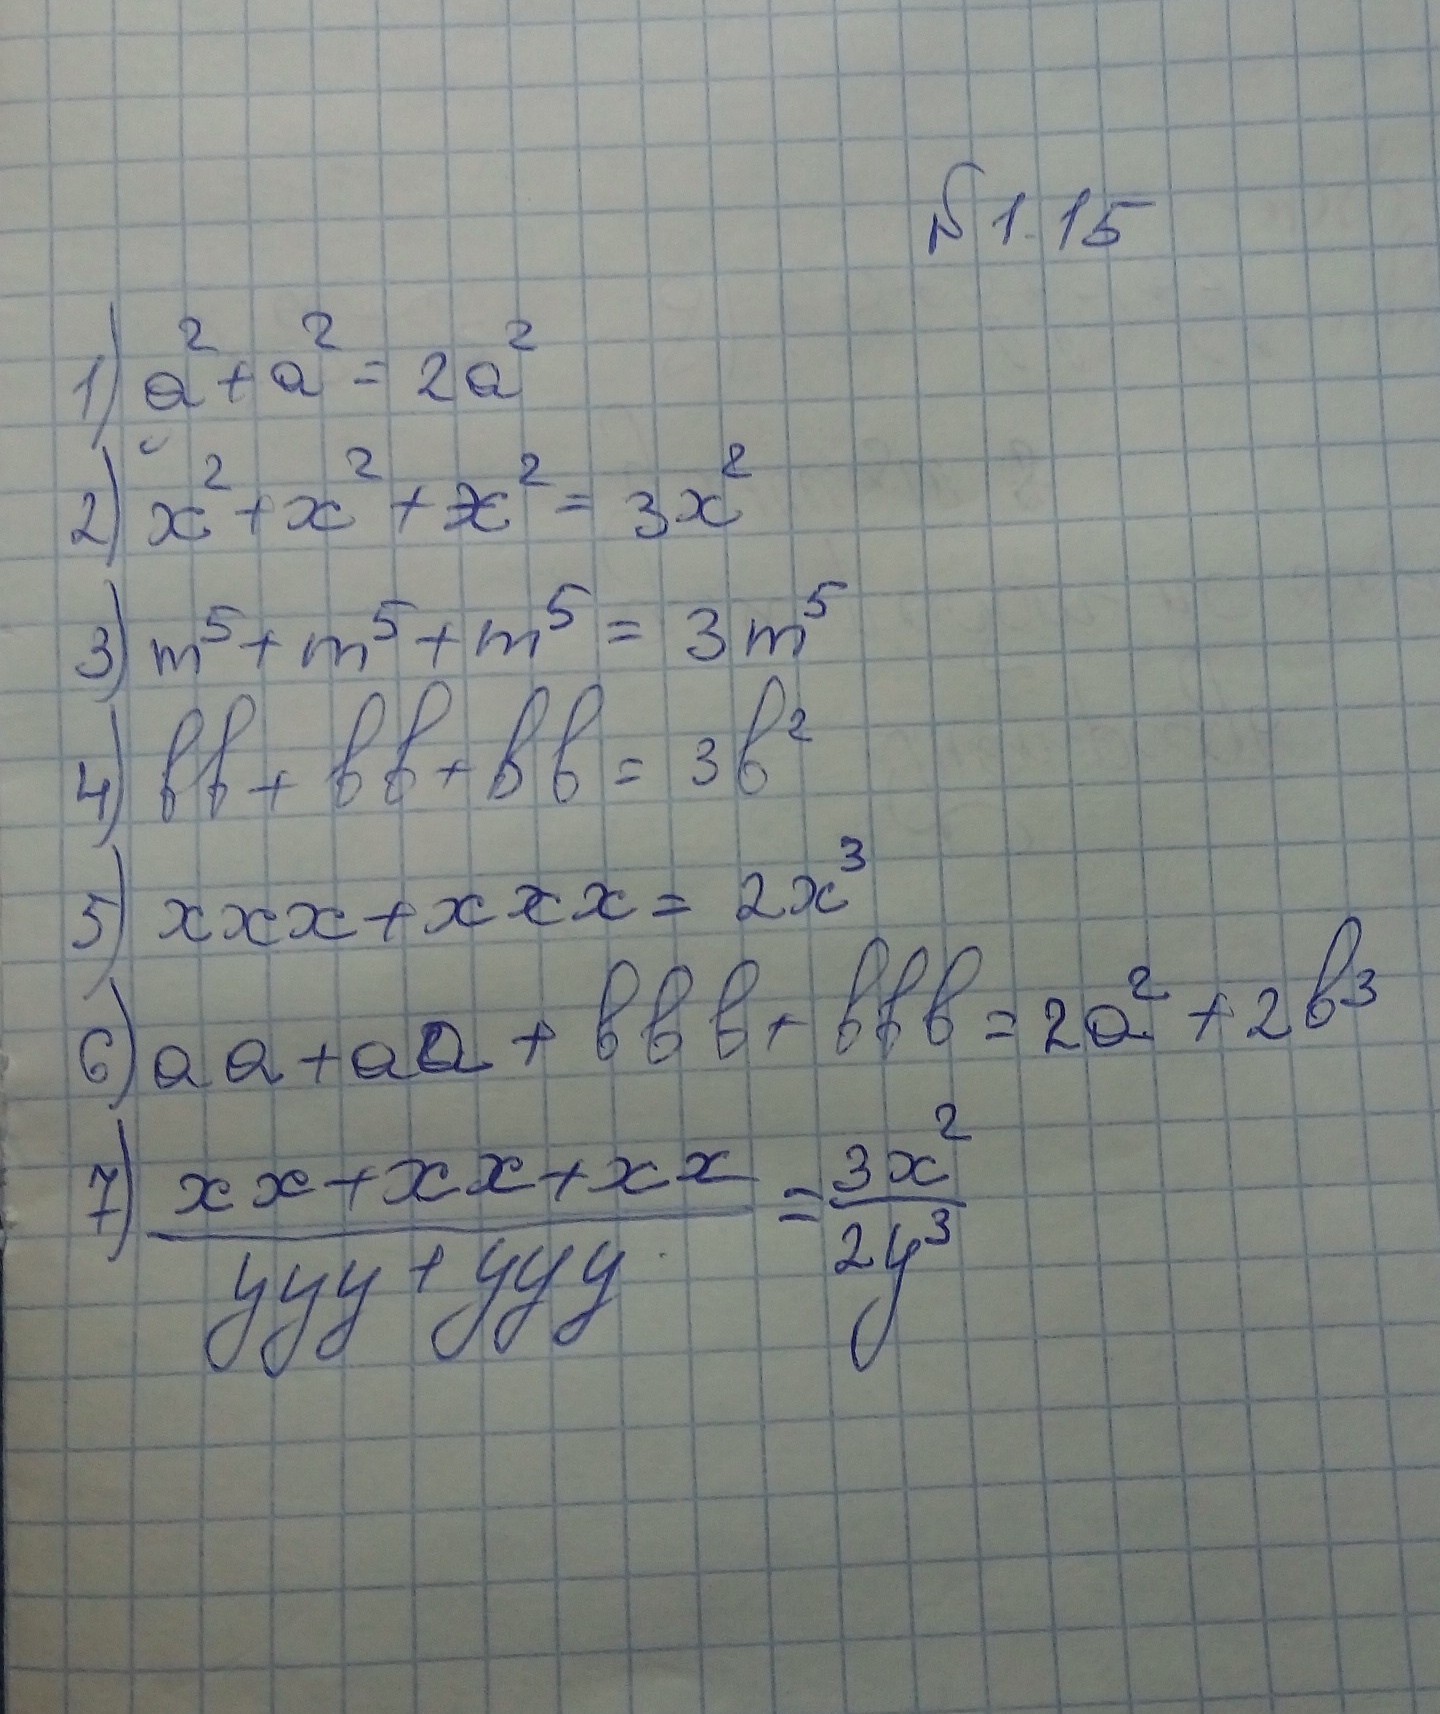 № 1.15
1) a² + a² = 2a²
2) x² + x² + x² = 3x²
3) m⁵ + m⁵ + m⁵ = 3m⁵
4) bb + bb + bb = 3b²
5) xxx + xxx = 2x³
6) aa + aa + bbb + bbb = 2a² + 2b³
7) xx + xx + xx / yyy + yyy = 3x² / 2y³